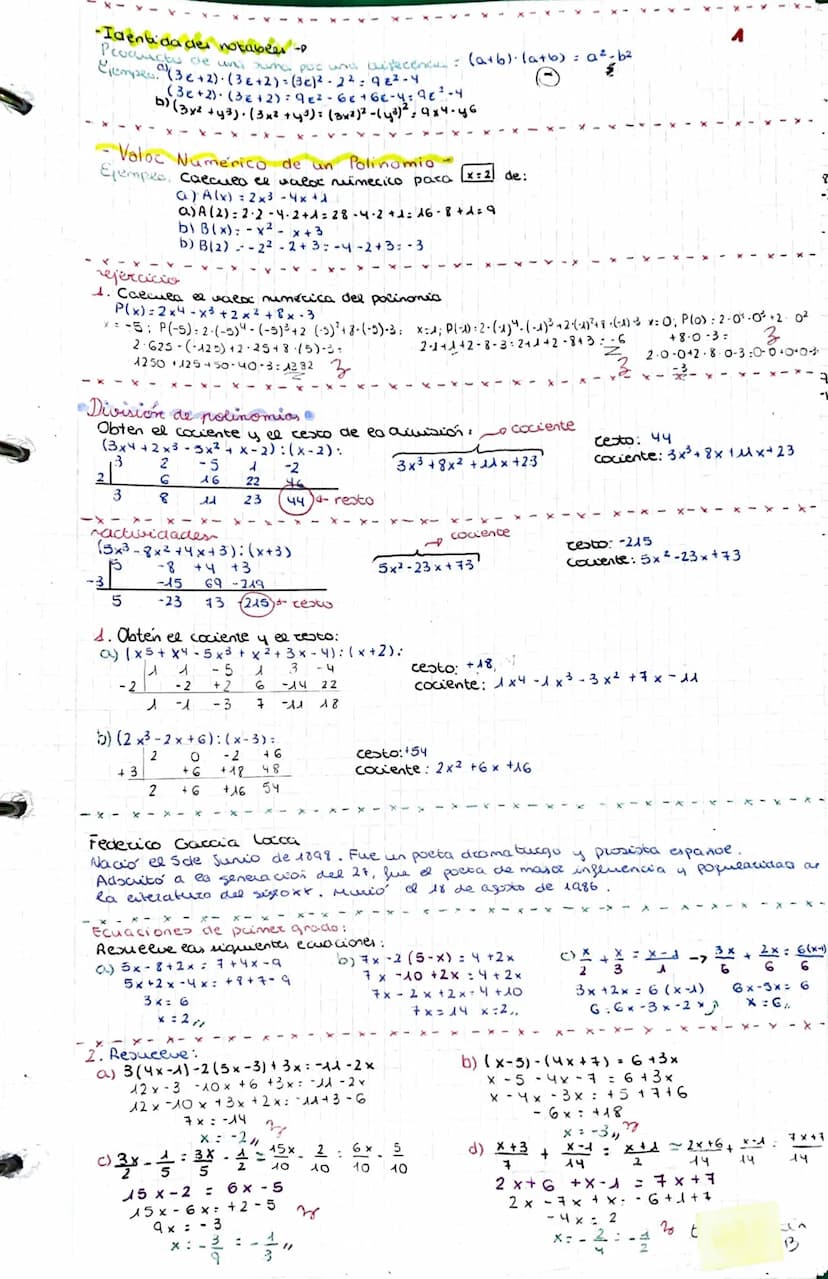 -Identidades notables→
1
Producto de una suma por una diferencia: (a+b)·(a+b) = a²-b²
(-)
Ejemplo: a) (3x+2)·(3x+2)=(3x)²-2²=9x²-4
(3x+2)·(3x+2)=9x²-6x+6x-4=9x²-4
b) (3x²+y³)·(3x²+y³)=(3x²)²-(y³)²=9x4-y6
- Valor Numérico de un Polinomio-
Ejemplo. Calcula el valor númerico para x=2 de:
a) A(x)=2x³-4x+1
a) A(2)=2·2-4·2+1=28-4·2+1=16-8+1=9
b) B(x)=-x²-x+3
b) B(2)=-2²-2+3=-4-2+3=-3
ejercicio
1. Calcula el valor numérica del polinomio
P(x)=2x4-x³+2x²+8x-3
x=-5; P(-5)=2·(-5)4-(-5)³+2(-5)²+8·(-5)-3= x=1; P(-1)=2·(-1)4-(-1)³+2(-1)²+8·(-1)-3 x=0; P(0)=2·04-0³+2·0²
+8·0-3=
2·625-(-125)+2·25+8·(5)-3= 2·1+1+2-8-3=2+1+2-8+3=-6
2·0·0+2·8·0-3=0-0+0+0-3
1250+125+50-40-3=1382
-3
División de polinomios
Obten el cociente y el resto de la división: cociente
(3x4+2x³-5x²+x-2):(x-2):
3x³+8x²+11x+23
resto: 44
cociente: 3x³+8x+11x+23
3 2 -5 1 -2
2 6 16 22 46
3 8 11 23 44 → resto
actividades
cociente
(5x³-8x²+4x+3):(x+3)
5x²-23x+73
resto: -215
cociente: 5x²-23x+73
5 -8 +4 +3
-3 -15 69 -219
5 -23 73 -215 → resto
1. Obtén el cociente y el resto:
a) (x5+x4-5x³+x²+3x-4):(x+2):
1 1 -5 1 3 -4
-2 -2 +2 6 -14 22
1 -1 -3 7 -11 18
resto: +18
cociente: 1x4-1x³-3x²+7x-11
b) (2x³-2x+6):(x-3):
2 0 -2 +6
+3 +6 +18 48
2 +6 +16 54
resto:+54
cociente: 2x²+6x+16
Federico García Lorca
Nació el 5 de Junio de 1898. Fue un poeta dramaturgo y prosista español.
Adscrito a la generación del 27, fue el poeta de mayor influencia y popularidad de
la literatura del siglo XX. Murió el 18 de agosto de 1986.
Ecuaciones de primer grado:
Resuelve las siguientes ecuaciones:
a) 5x-8+2x=7+4x-9
5x+2x-4x=+8+7-9
3x=6
x=2,,
b) 7x-2(5-x)=4+2x
7x-10+2x=4+2x
7x-2x+2x=4+10
7x=14 x=2,,
c) x/2+x/3=x-1/1→3x/6+2x/6=6(x-1)/6
3x+2x=6(x-1) 6x-5x=6
6=6x-3x-2x x=6,,
2. Resuelve:
a) 3(4x-1)-2(5x-3)+3x=-11-2x
12x-3-10x+6+3x=-11-2x
12x-10x+3x+2x=-11+3-6
7x=-14
x=-2,,
b) (x-5)-(4x+7)=6+3x
x-5-4x-7=6+3x
x-4x-3x=+5+7+6
-6x=+18
x=-3,,
c) 3x/2-1/5=3x/5-1/2=15x/10-2/10=6x/10-5/10
15x-2=6x-5
15x-6x=+2-5
9x=-3
x=-3/9=-1/3,,
d) x+3/7+x-1/14=x+1/2=2x+6/14+x-1/14=7x+7/14
2x+6+x-1=7x+7
2x-7x+x=-6+1+7
-4x=2
x=-2/4=-1/2